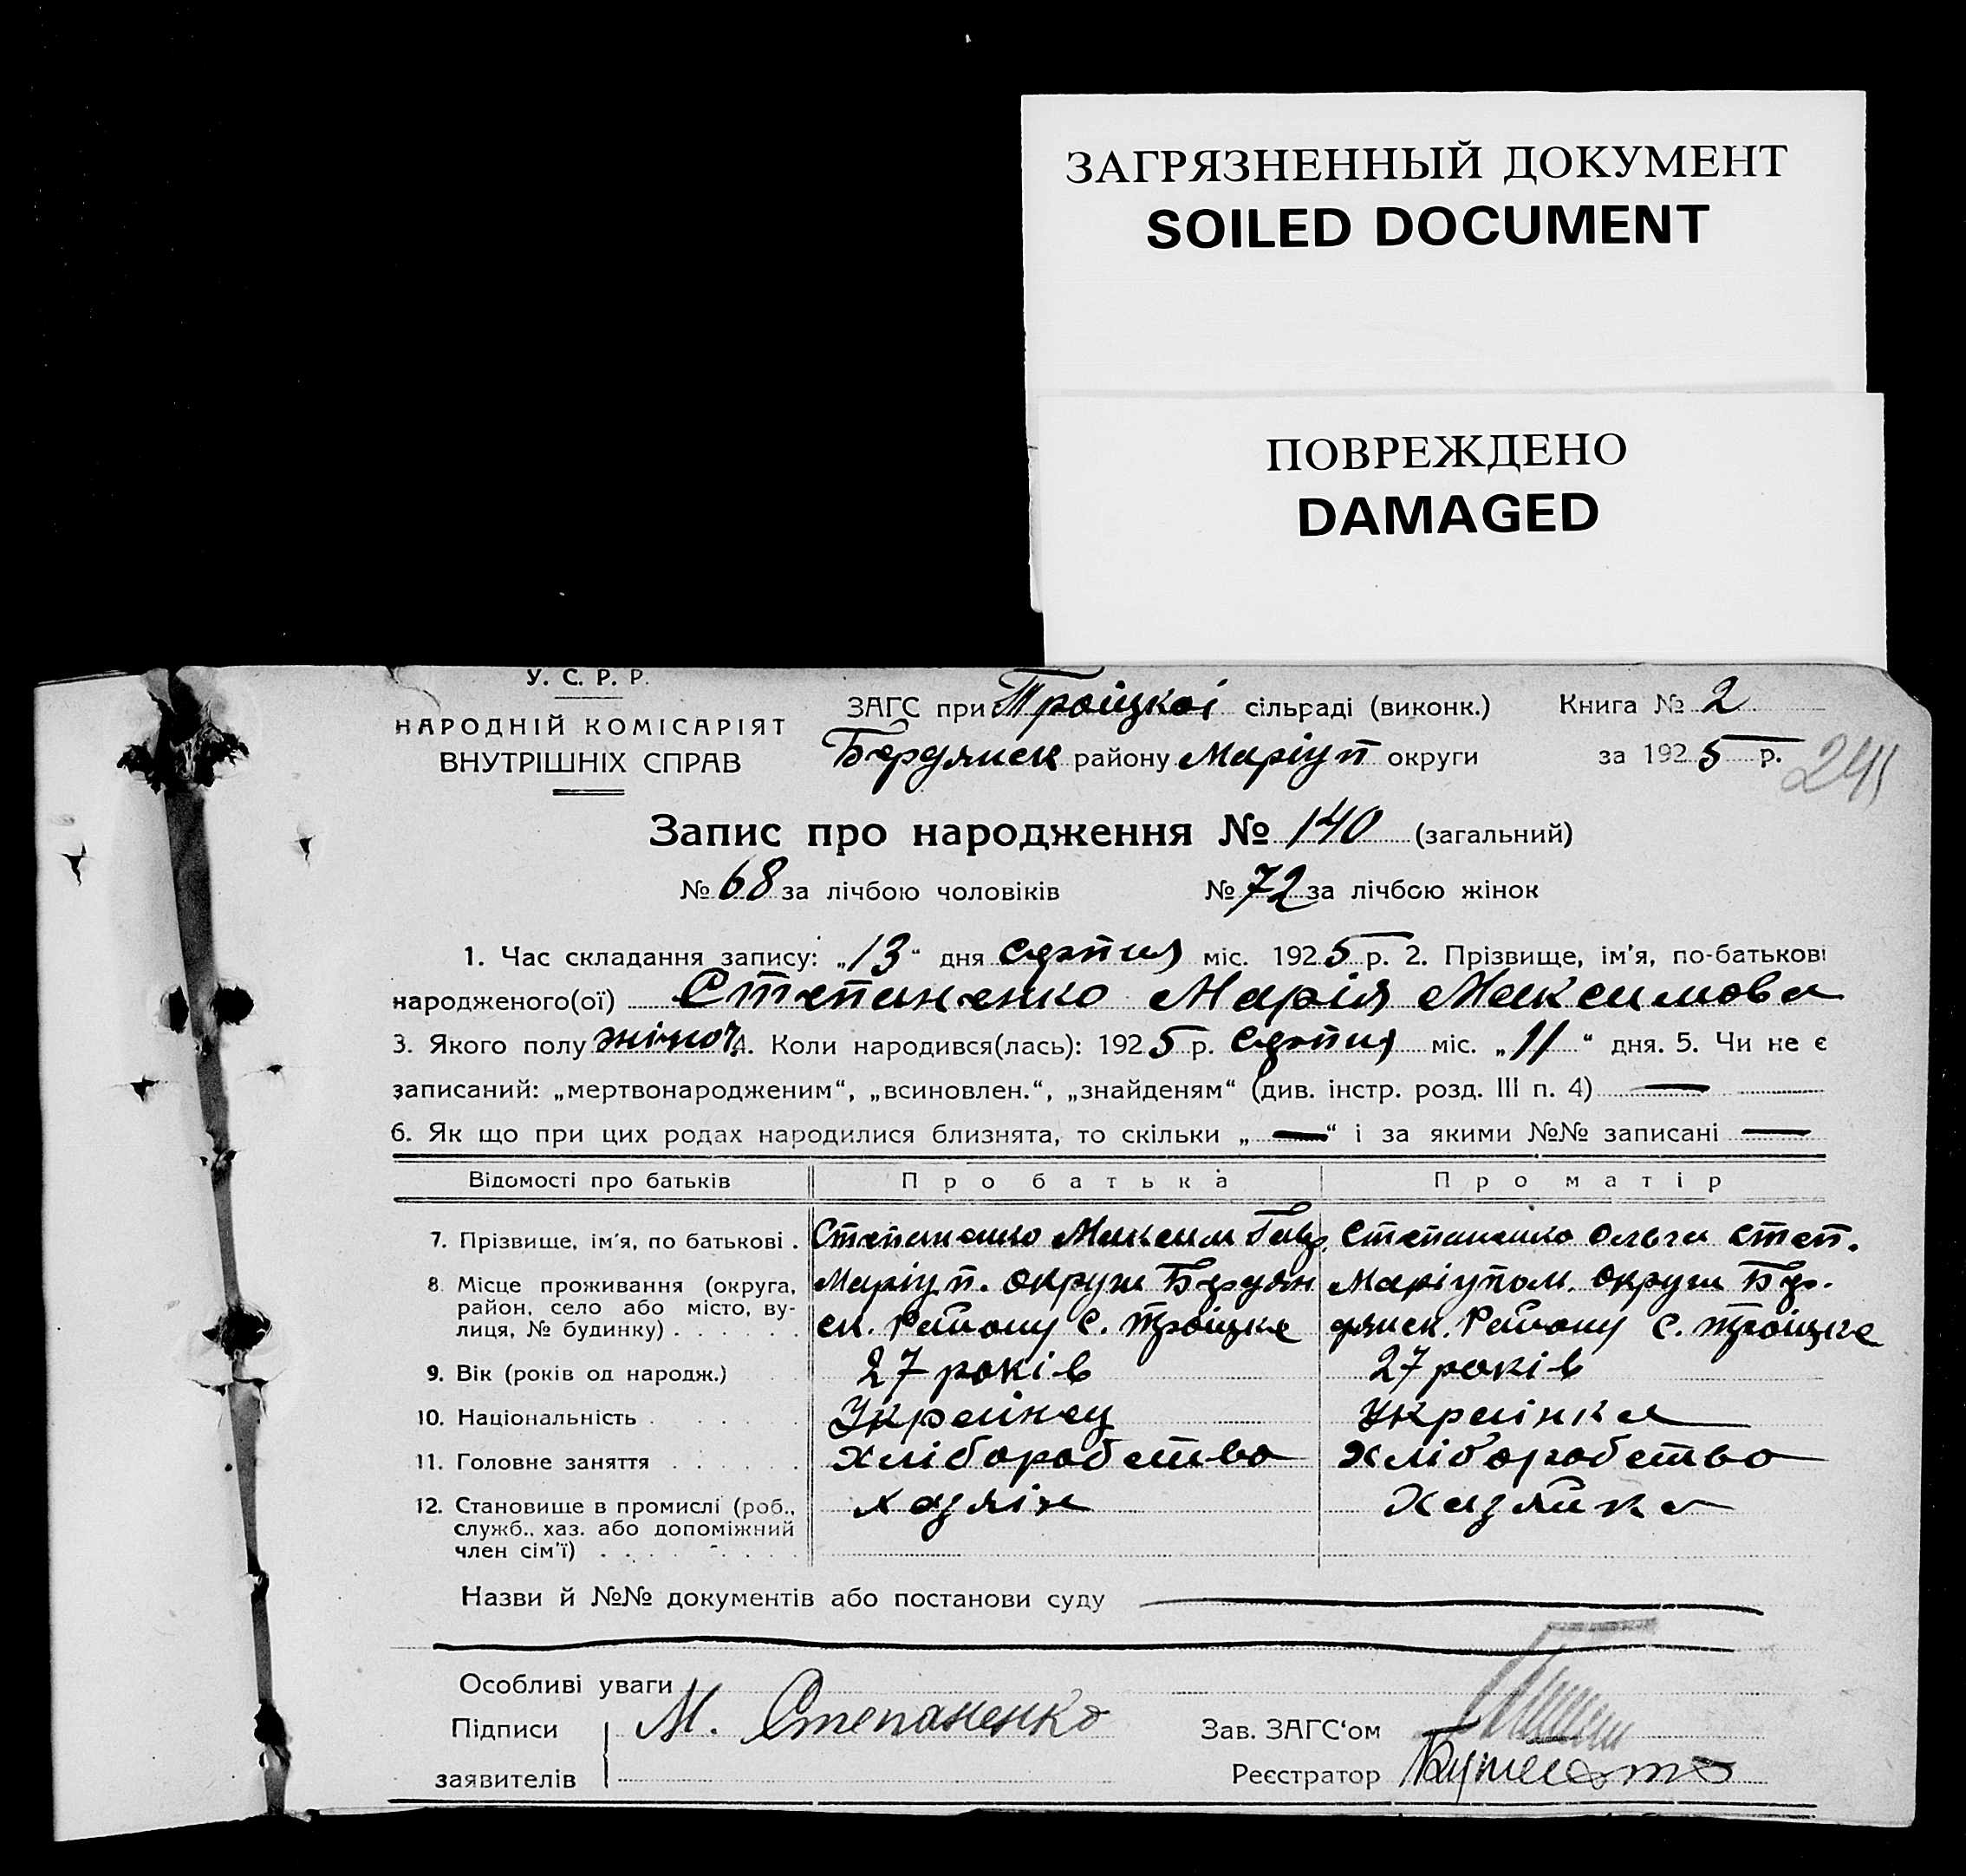 ЗАГРЯЗНЕННЫЙ ДОКУМЕНТ
SOILED DOCUMENT
ПОВРЕЖДЕНО
DAMAGED
У. С. Р. Р.
НАРОДНІЙ КОМІСАРІЯТ
ВНУТРІШНІХ СПРАВ
ЗАГС при Троіцкоі сільраді (виконк.) Книга № 2
Бердянск району Маріуп округи за 1925 р.
241
Запис про народження № 140 (загальний)
№ 68 за лічбою чоловіків № 72 за лічбою жінок
1. Час складання запису: „13“ дня серпня міс. 1925 р. 2. Прізвище, ім'я, по-батькові
народженого(ої) Степаненко Марія Максимова
3. Якого полу жіноч 4. Коли народився(лась): 1925 р. Серпня міс. „11“ дня. 5. Чи не є
записаний: „мертвонародженим“, „всиновлен.“, „знайденям“ (див. інстр. розд. III п. 4) —
6. Як що при цих родах народилися близнята, то скільки „—“ і за якими №№ записані —
Відомості про батьків Про батька Про матір
7. Прізвище, ім'я, по батькові . Степаненко Максим Гавр. Степаненко Ольга Степ.
8. Місце проживання (округа, район, село або місто, вулиця, № будинку) . . . . . . Маріуп. округи Бердян
ск. Району С. Троіцке Маріупол. округи Бер.
дянск. Району С. Троіцке
9. Вік (років од народж.) 27 років 27 років
10. Національність . . . . . . Украінец Украінка
11. Головне заняття . . . . . . хліборобство хліборобство
12. Становище в промислі (роб., служб., хаз. або допоміжний член сім'ї) . . . . . . хазяін Хазяйка
Назви й №№ документів або постанови суду
Особливі уваги
Підписи заявителів М. Степаненко
Зав. ЗАГС'ом
Реєстратор